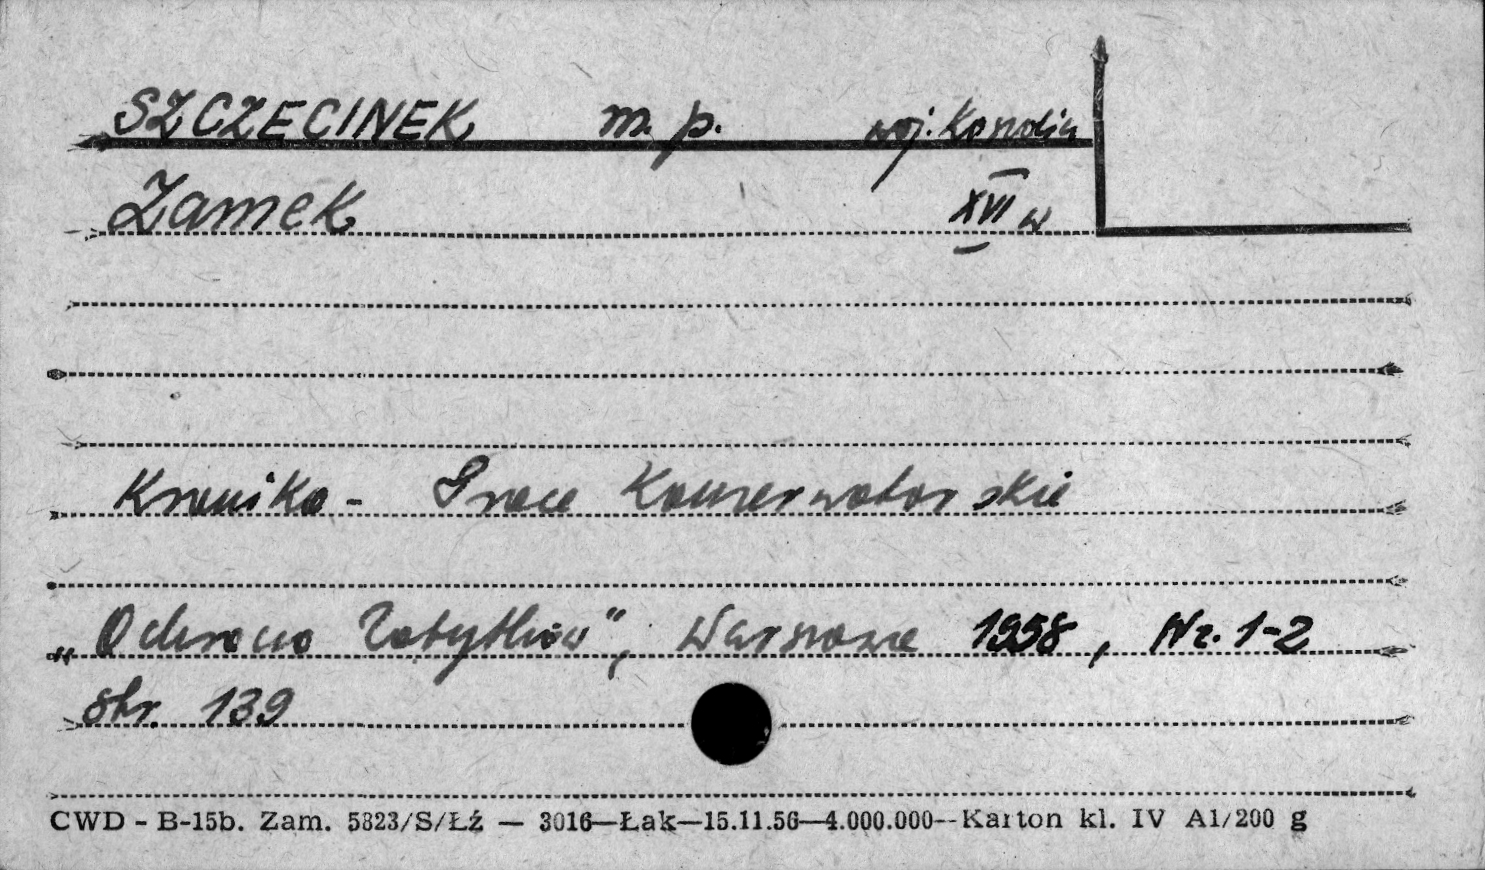 SZCZECINEK m. p. woj. Koszalin
Zamek XVI w
Kronika - Prace Konserwatorskie
„Ochrona Zabytków", Warszawa 1958, Nr. 1-2
str. 139
CWD - B-15b. Zam. 5823/S/Łź — 3016—Łak—15.11.56—4.000.000--Karton kl. IV A1/200 g